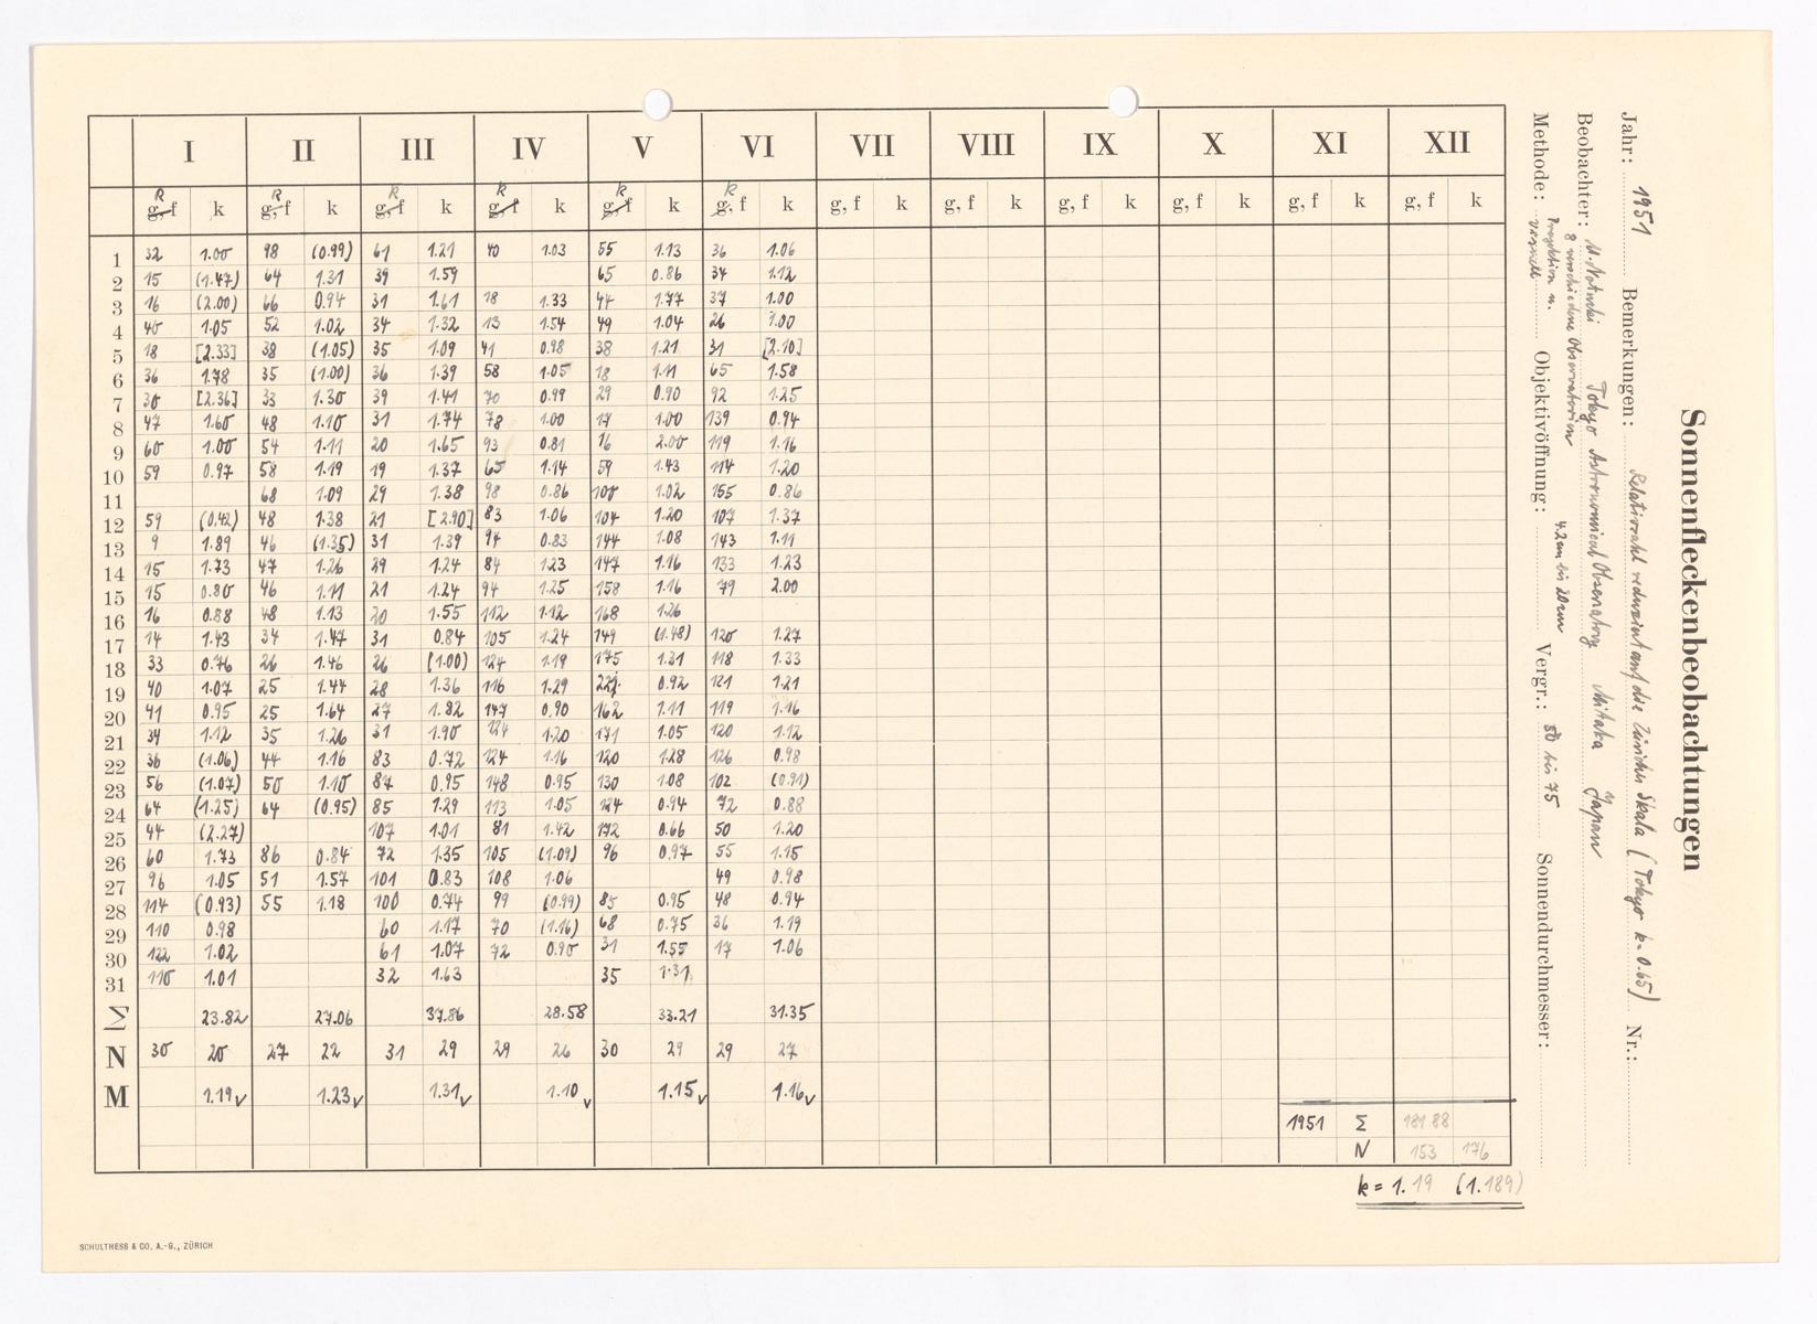 Sonnenfleckenbeobachtungen
Jahr: 1951 Bemerkungen: Relativzahl reduziert auf die Zürcher Skala (Tokyo k = 0.65) Nr.:
Beobachter: Tokyo Astronomical Observatory Mitaka Japan
8 verschiedene Observatorien
Methode: Projektion u. visuell Objektivöffnung: 4.2cm bis 20cm Vergr.: 50 bis 75 Sonnendurchmesser:
I II III IV V VI VII VIII IX X XI XII
R R R k k k
g, f k g, f k g, f k g, f k g, f k g, f k g, f k g, f k g, f k g, f k g, f k g, f k
1 32 1.00 98 (0.99) 61 1.21 40 1.03 55 1.13 36 1.06
2 15 (1.47) 64 1.31 39 1.59 65 0.86 34 1.12
3 16 (2.00) 66 0.94 31 1.61 18 1.33 44 1.77 37 1.00
4 40 1.05 52 1.02 34 1.32 13 1.54 49 1.04 26 1.00
5 18 [2.33] 38 (1.05) 35 1.09 41 0.98 38 1.21 31 [2.10]
6 36 1.78 35 (1.00) 36 1.39 58 1.05 18 1.11 65 1.58
7 30 [2.36] 33 1.30 39 1.41 70 0.99 29 0.90 92 1.25
8 47 1.60 48 1.10 31 1.74 78 1.00 17 1.00 139 0.94
9 60 1.00 54 1.11 20 1.65 93 0.81 16 2.00 119 1.16
10 59 0.97 58 1.19 19 1.37 65 1.14 59 1.43 114 1.20
11 68 1.09 29 1.38 98 0.86 108 1.02 155 0.86
12 59 (0.42) 48 1.38 21 [2.90] 83 1.06 104 1.20 107 1.37
13 9 1.89 46 (1.35) 31 1.39 94 0.83 144 1.08 143 1.11
14 15 1.73 47 1.26 29 1.24 84 1.23 147 1.16 133 1.23
15 15 0.80 46 1.11 21 1.24 94 1.25 158 1.16 79 2.00
16 16 0.88 48 1.13 20 1.55 112 1.12 168 1.26
17 14 1.43 34 1.47 31 0.84 105 1.24 149 (1.48) 120 1.27
18 33 0.76 26 1.46 26 (1.00) 124 1.19 175 1.31 118 1.33
19 40 1.07 25 1.44 28 1.36 116 1.29 0.92 121 1.21
20 41 0.95 25 1.64 27 1.82 147 0.90 162 1.11 119 1.16
21 34 1.12 35 1.26 31 1.90 124 1.20 171 1.05 120 1.12
22 36 (1.06) 44 1.16 83 0.72 124 1.16 120 1.28 126 0.98
23 56 (1.07) 50 1.10 87 0.95 148 0.95 130 1.08 102 (0.91)
24 64 (1.25) 64 (0.95) 85 1.29 113 1.05 124 0.94 72 0.88
25 44 (2.27) 107 1.01 81 1.42 172 0.66 50 1.20
26 60 1.73 86 0.84 72 1.35 105 (1.09) 96 0.97 55 1.15
27 96 1.05 51 1.57 101 0.83 108 1.06 49 0.98
28 114 (0.93) 55 1.18 100 0.74 99 (0.99) 85 0.95 48 0.94
29 110 0.98 60 1.17 70 (1.16) 68 0.75 36 1.19
30 122 1.02 61 1.07 72 0.90 31 1.55 17 1.06
31 110 1.01 32 1.63 35 1.31
Σ 23.82 27.06 37.86 28.58 33.21 31.35
N 30 20 27 22 31 29 29 26 30 29 29 27
M 1.19 ✓ 1.23 ✓ 1.31 ✓ 1.10 ✓ 1.15 ✓ 1.16 ✓
1951 Σ 181.88
N 153 176
k = 1.19 (1.189)
SCHULTHESS & CO. A.-G., ZÜRICH